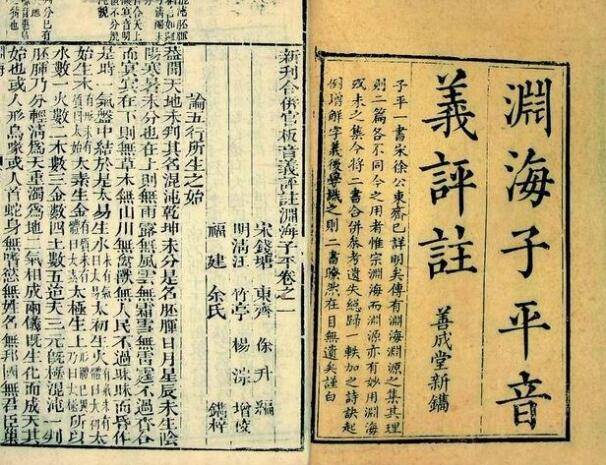 淵海子平音
義評註
善成堂新鐫
子平一書宋徐公東齋已詳明矣傳有淵海淵源之集其理
則二篇各不同今之用者惟宗淵海而淵源亦有妙用淵海
或未之集今將二書合併叅考遺失總歸一帙加之詩訣起
例增解字義後學識之則二書瞭然在目無遺矣謹白
新刊合併官板音義評註淵海子平卷之一
宋錢塘 東齊 徐升 編
明淸江 竹亭 楊淙 增校
福建 余氏 鐫梓
論五行所生之始
蓋聞天地未判其名混沌乾坤未分是名胚腪日月星辰未生陰
陽寒暑未分也在上則無雨露無風雲無霜雪無雷霆不過杳合
而冥冥在下則無草木無山川無禽獸無人民不過昧昧而昏作
是時氣盤中結於是太易生水未有氣曰太易太初生火有氣未有體曰太初太
始生木有形未有質曰太始太素生金有質未有體曰太素太極生土太極所以
水數一火數二木數三金數四土數五迨夫三元旣極混沌一判
胚腪乃分輕淸爲天重濁爲地二氣相成兩儀旣生化而成天其
始也或人形鳥喙或人首蛇身無嗜慾無姓名無邦國無君臣巢